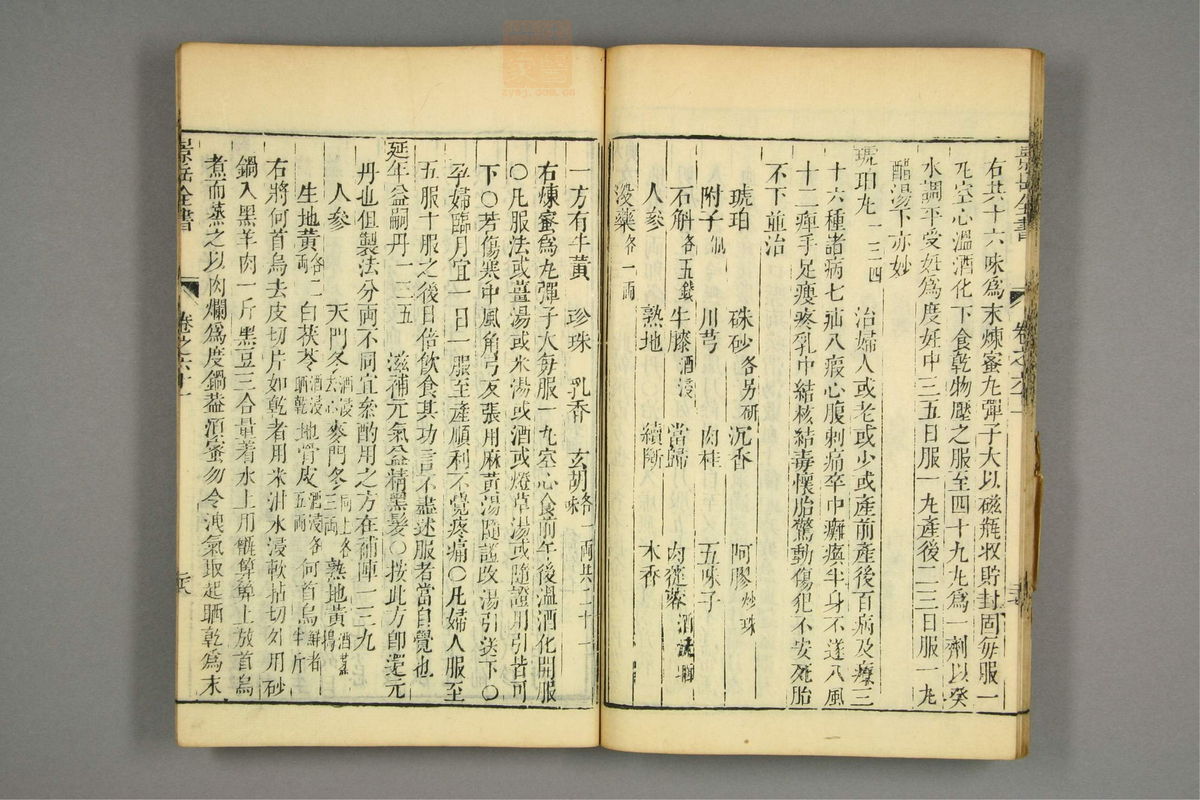 右共十六味爲末煉蜜丸彈子大以磁瓶收貯封固每服一
丸空心溫酒化下食乾物壓之服至四十九丸爲一劑以癸
水調平受姙爲度姙中三五日服一丸產後二三日服一丸
醋湯下亦妙
琥珀丸一三四 治婦人或老或少或產前產後百病及療三
十六種諸病七疝八瘕心腹刺痛卒中癱瘓半身不遂八風
十二痺手足痠疼乳中結核結毒懷胎驚動傷犯不安死胎
不下並治
琥珀 硃砂各另研 沉香 阿膠炒珠
附子 川芎 肉桂 五味子
石斛各五錢 牛膝酒浸 當歸 肉蓯蓉酒洗曬
人參 熟地 續斷 木香
沒藥各一兩
一方有牛黃 珍珠 乳香 玄胡各一兩共二十一味
右煉蜜爲丸彈子大每服一丸空心食前午後溫酒化開服
○凡服法或薑湯或米湯或酒或燈草湯或隨證用引皆可
下○若傷寒中風角弓反張用麻黃湯隨證改湯引送下○
孕婦臨月宜一日一服至產順利不覺疼痛○凡婦人服至
五服十服之後日倍飲食其功言不盡述服者當自覺也
延年益嗣丹一三五 滋補元氣益精黑髮○按此方卽還元
丹也但製法分兩不同宜叅酌用之方在補陣一三九
人參 天門冬酒浸去心 麥門冬同上各三兩 熟地黃酒蒸搗
生地黃各二兩 白茯苓酒浸晒乾 地骨皮酒浸各五兩 何首烏鮮者半斤
右將何首烏去皮切片如乾者用米泔水浸軟括切外用砂
鍋入黑羊肉一斤黑豆三合量著水上用甑箅箅上放首烏
煮而蒸之以肉爛爲度鍋葢須蜜勿令洩氣取起晒乾爲末
景岳全書
卷之六十一